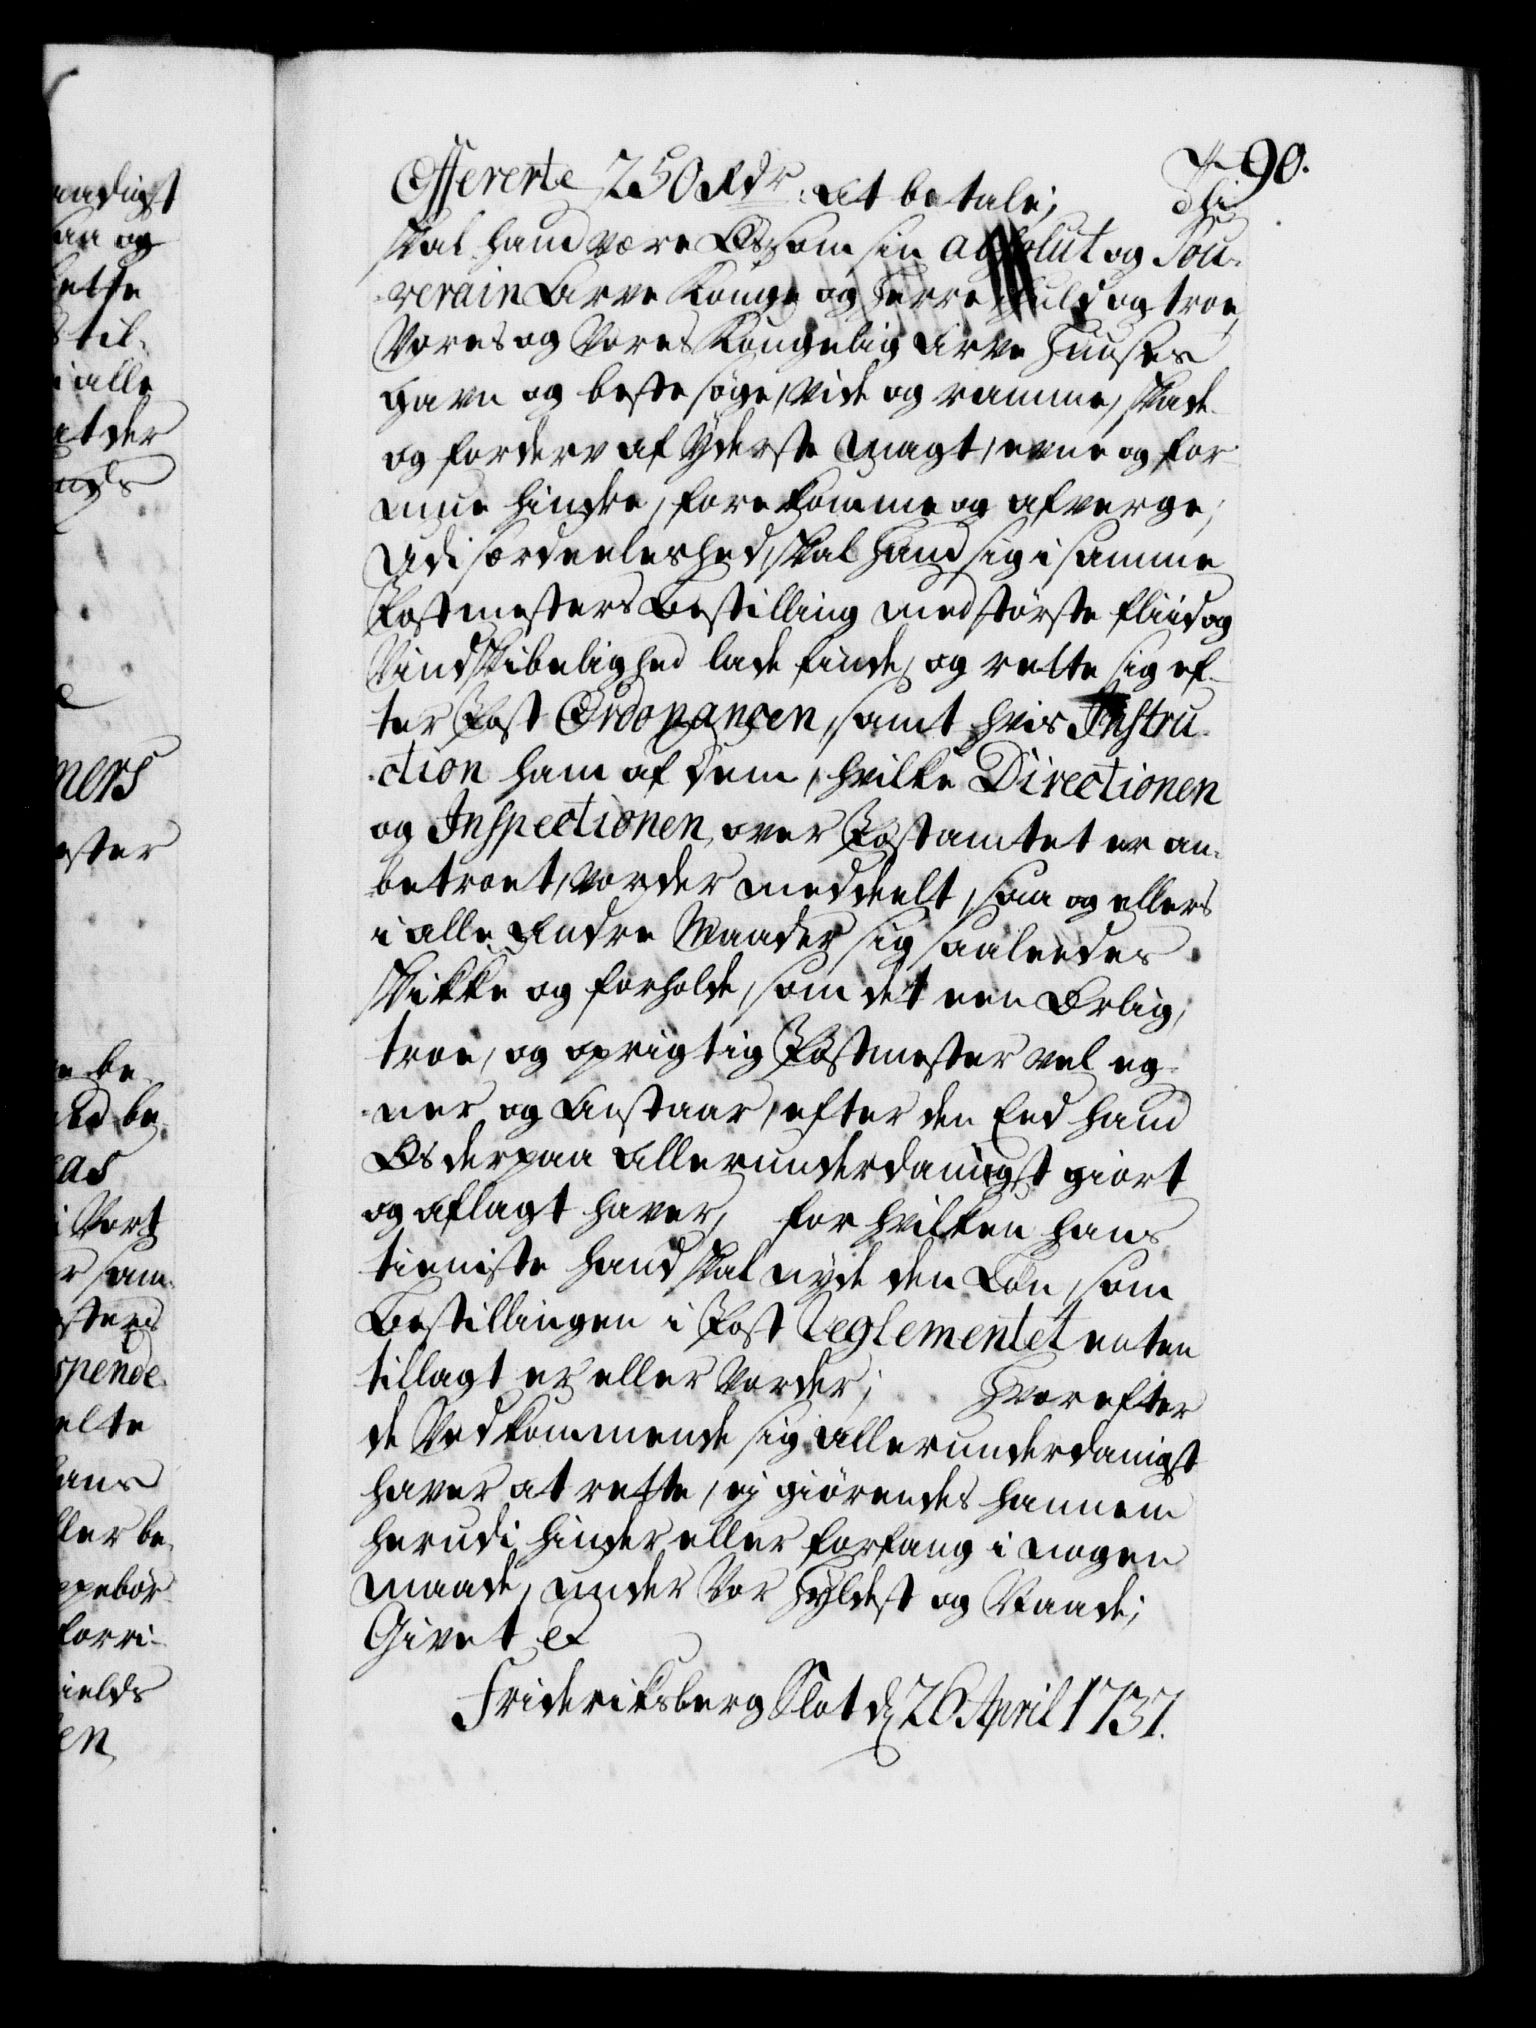 90.
Offererte 250 Rdr: at betale; Thi
skal hand være Os som sin absolut og Sou-
verain Arve Konge og Herre huld og troe,
Vores og Vores Kongelig Arve Huuses
gavn og beste søge, vide og ramme, skade
og forderv af yderste magt, evne og for-
mue hindre, forekomme og afverge;
Udi særdeeleshed, skal hand sig i samme
Postmesters Bestilling med største fliid og
Vindskibelighed lade finde, og rette sig ef-
ter Post Ordonancen, samt hvis Instru-
ction ham af dem, hvilke Directionen
og Inspectionen, over Postamtet er an-
betroet, vorder meddeelt, saa og ellers
i alle Andre Maader sig saaledes
skikke og forholde, som det een Ærlig,
troe, og oprigtig Postmester vel eg-
ner og Anstaar, efter den Eed hand
Os derpaa Allerunderdanigst giort
og aflagt haver, for hvilken hans
tieniste hand skal nyde den Løn, som
Bestillingen i Post Reglementet enten
tillagt er eller vorder; Hvorefter
de Vedkommende sig allerunderdanigst
haver at rette, ej giørendes hannem
herudi hinder eller forfang i nogen
maade, under Vor Hyldest og Naade;
Givet &
Frideriksberg Slot d 26 April 1737.
naadigst
saa og
til-
i alle
at der
mers
ester
be-
be-
Vort
sam-
spende-
elte
hans
ller be-
ppebør-
forri-
ields
en